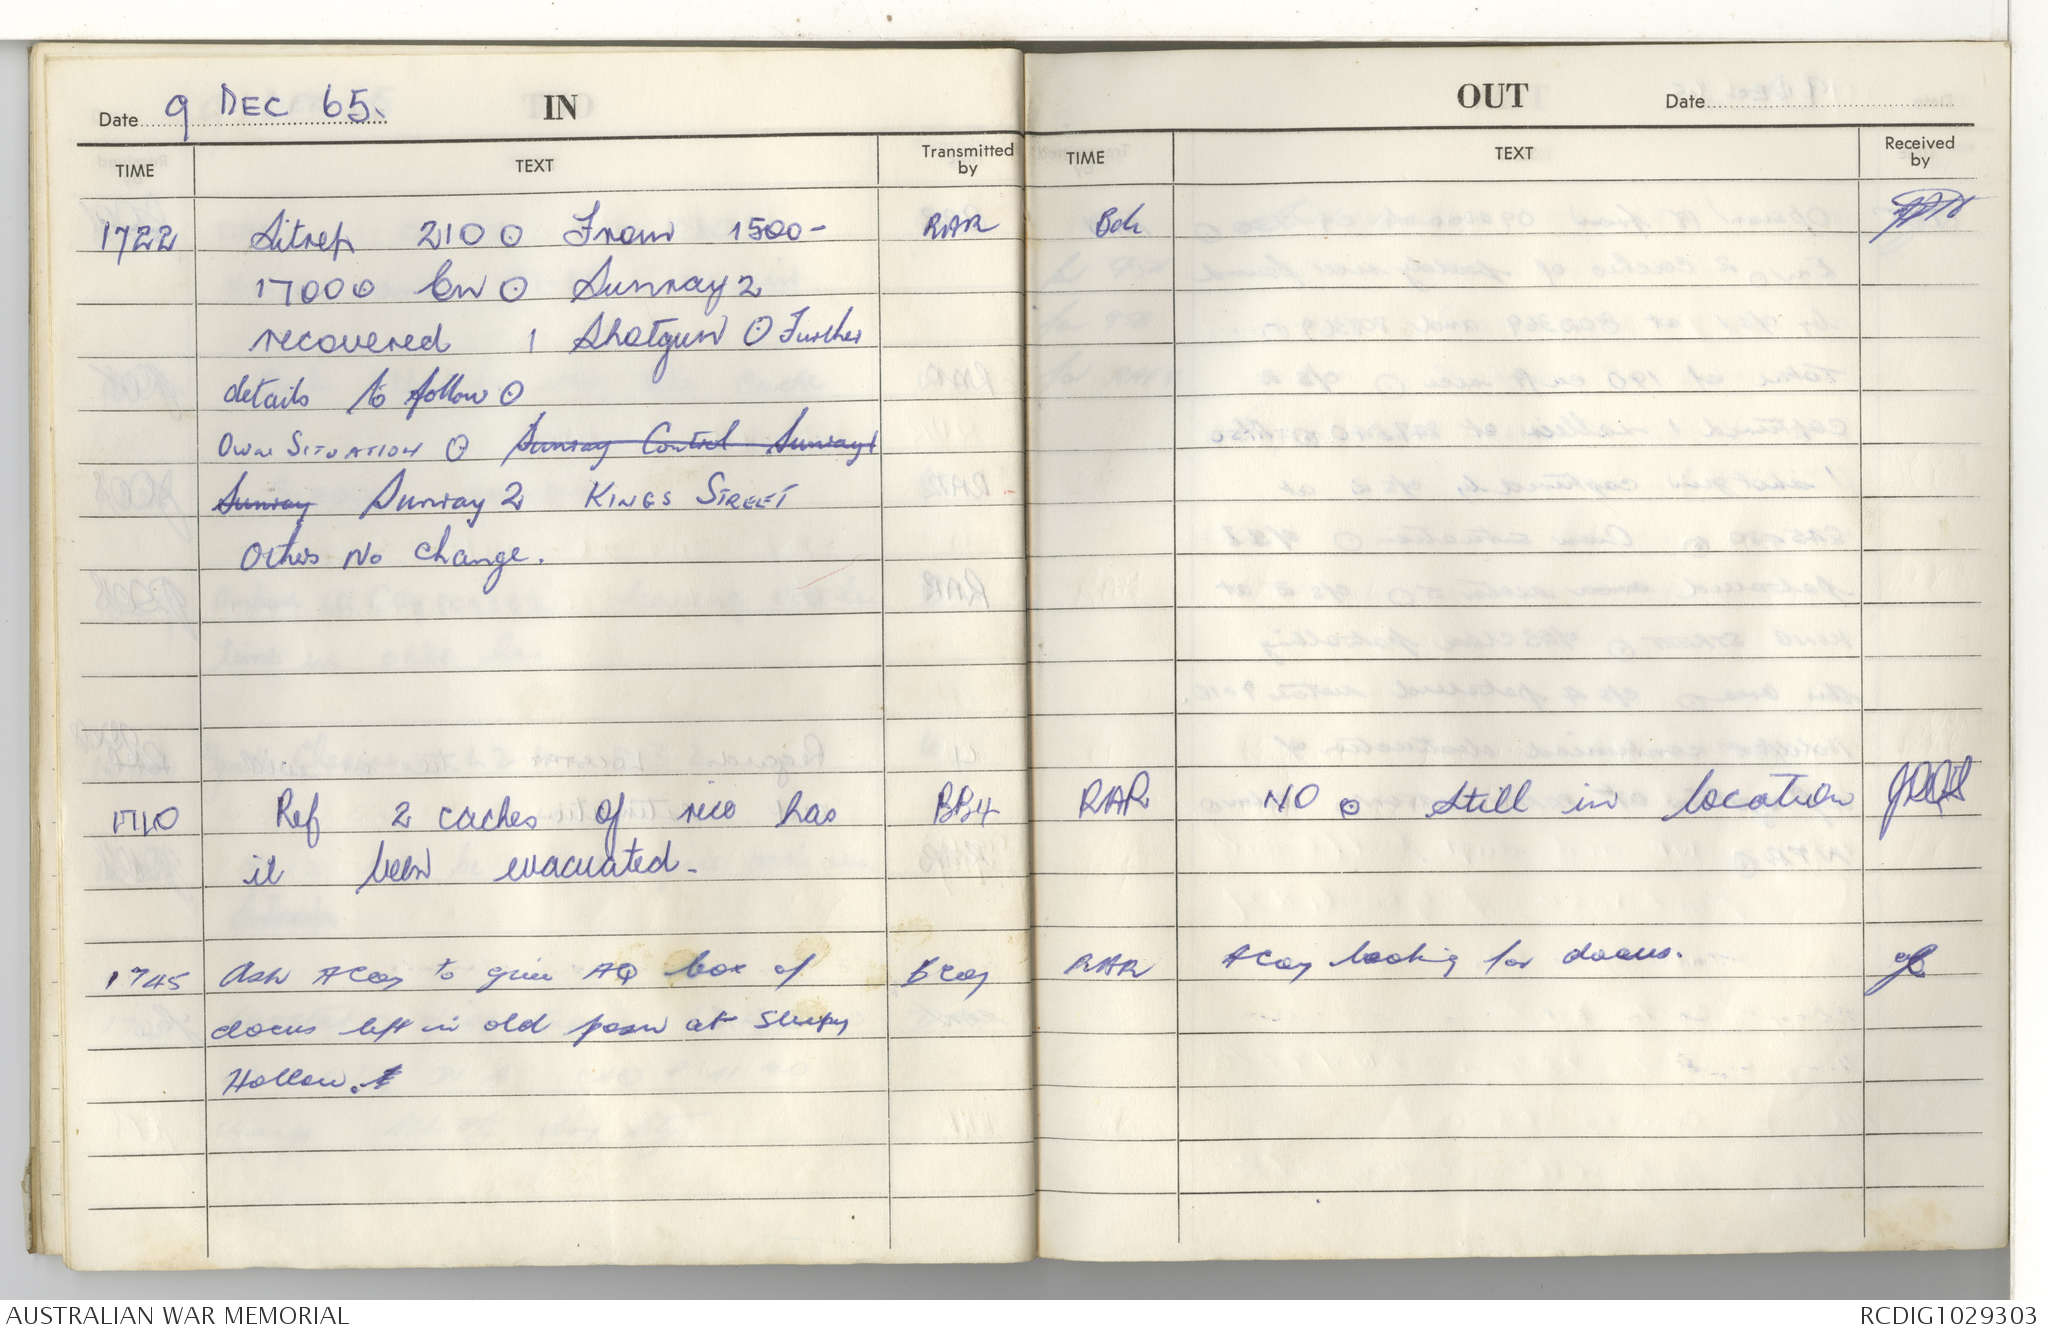 Date 9 DEC 65. IN
TIME TEXT Transmitted by
1722 Sitrep 210 ⊙ From 1500- RAR
1700 ⊙ En ⊙ Sunray 2
recovered 1 Shotgun ⊙ Further
details to follow ⊙
OWN SITUATION ⊙ Sunray Control Sunray 1
Sunray Sunray 2 KINGS STREET
Others No change.
1710 Ref 2 caches of rice has BB4
it been evacuated.
1745 Ask A Coy to give AQ box of B Coy
docus left in old posn at Sleepy
Hollow.
OUT Date
TIME TEXT Received by
RAR NO ⊙ Still in location
RAR A Coy looking for docus.
AUSTRALIAN WAR MEMORIAL RCDIG1029303